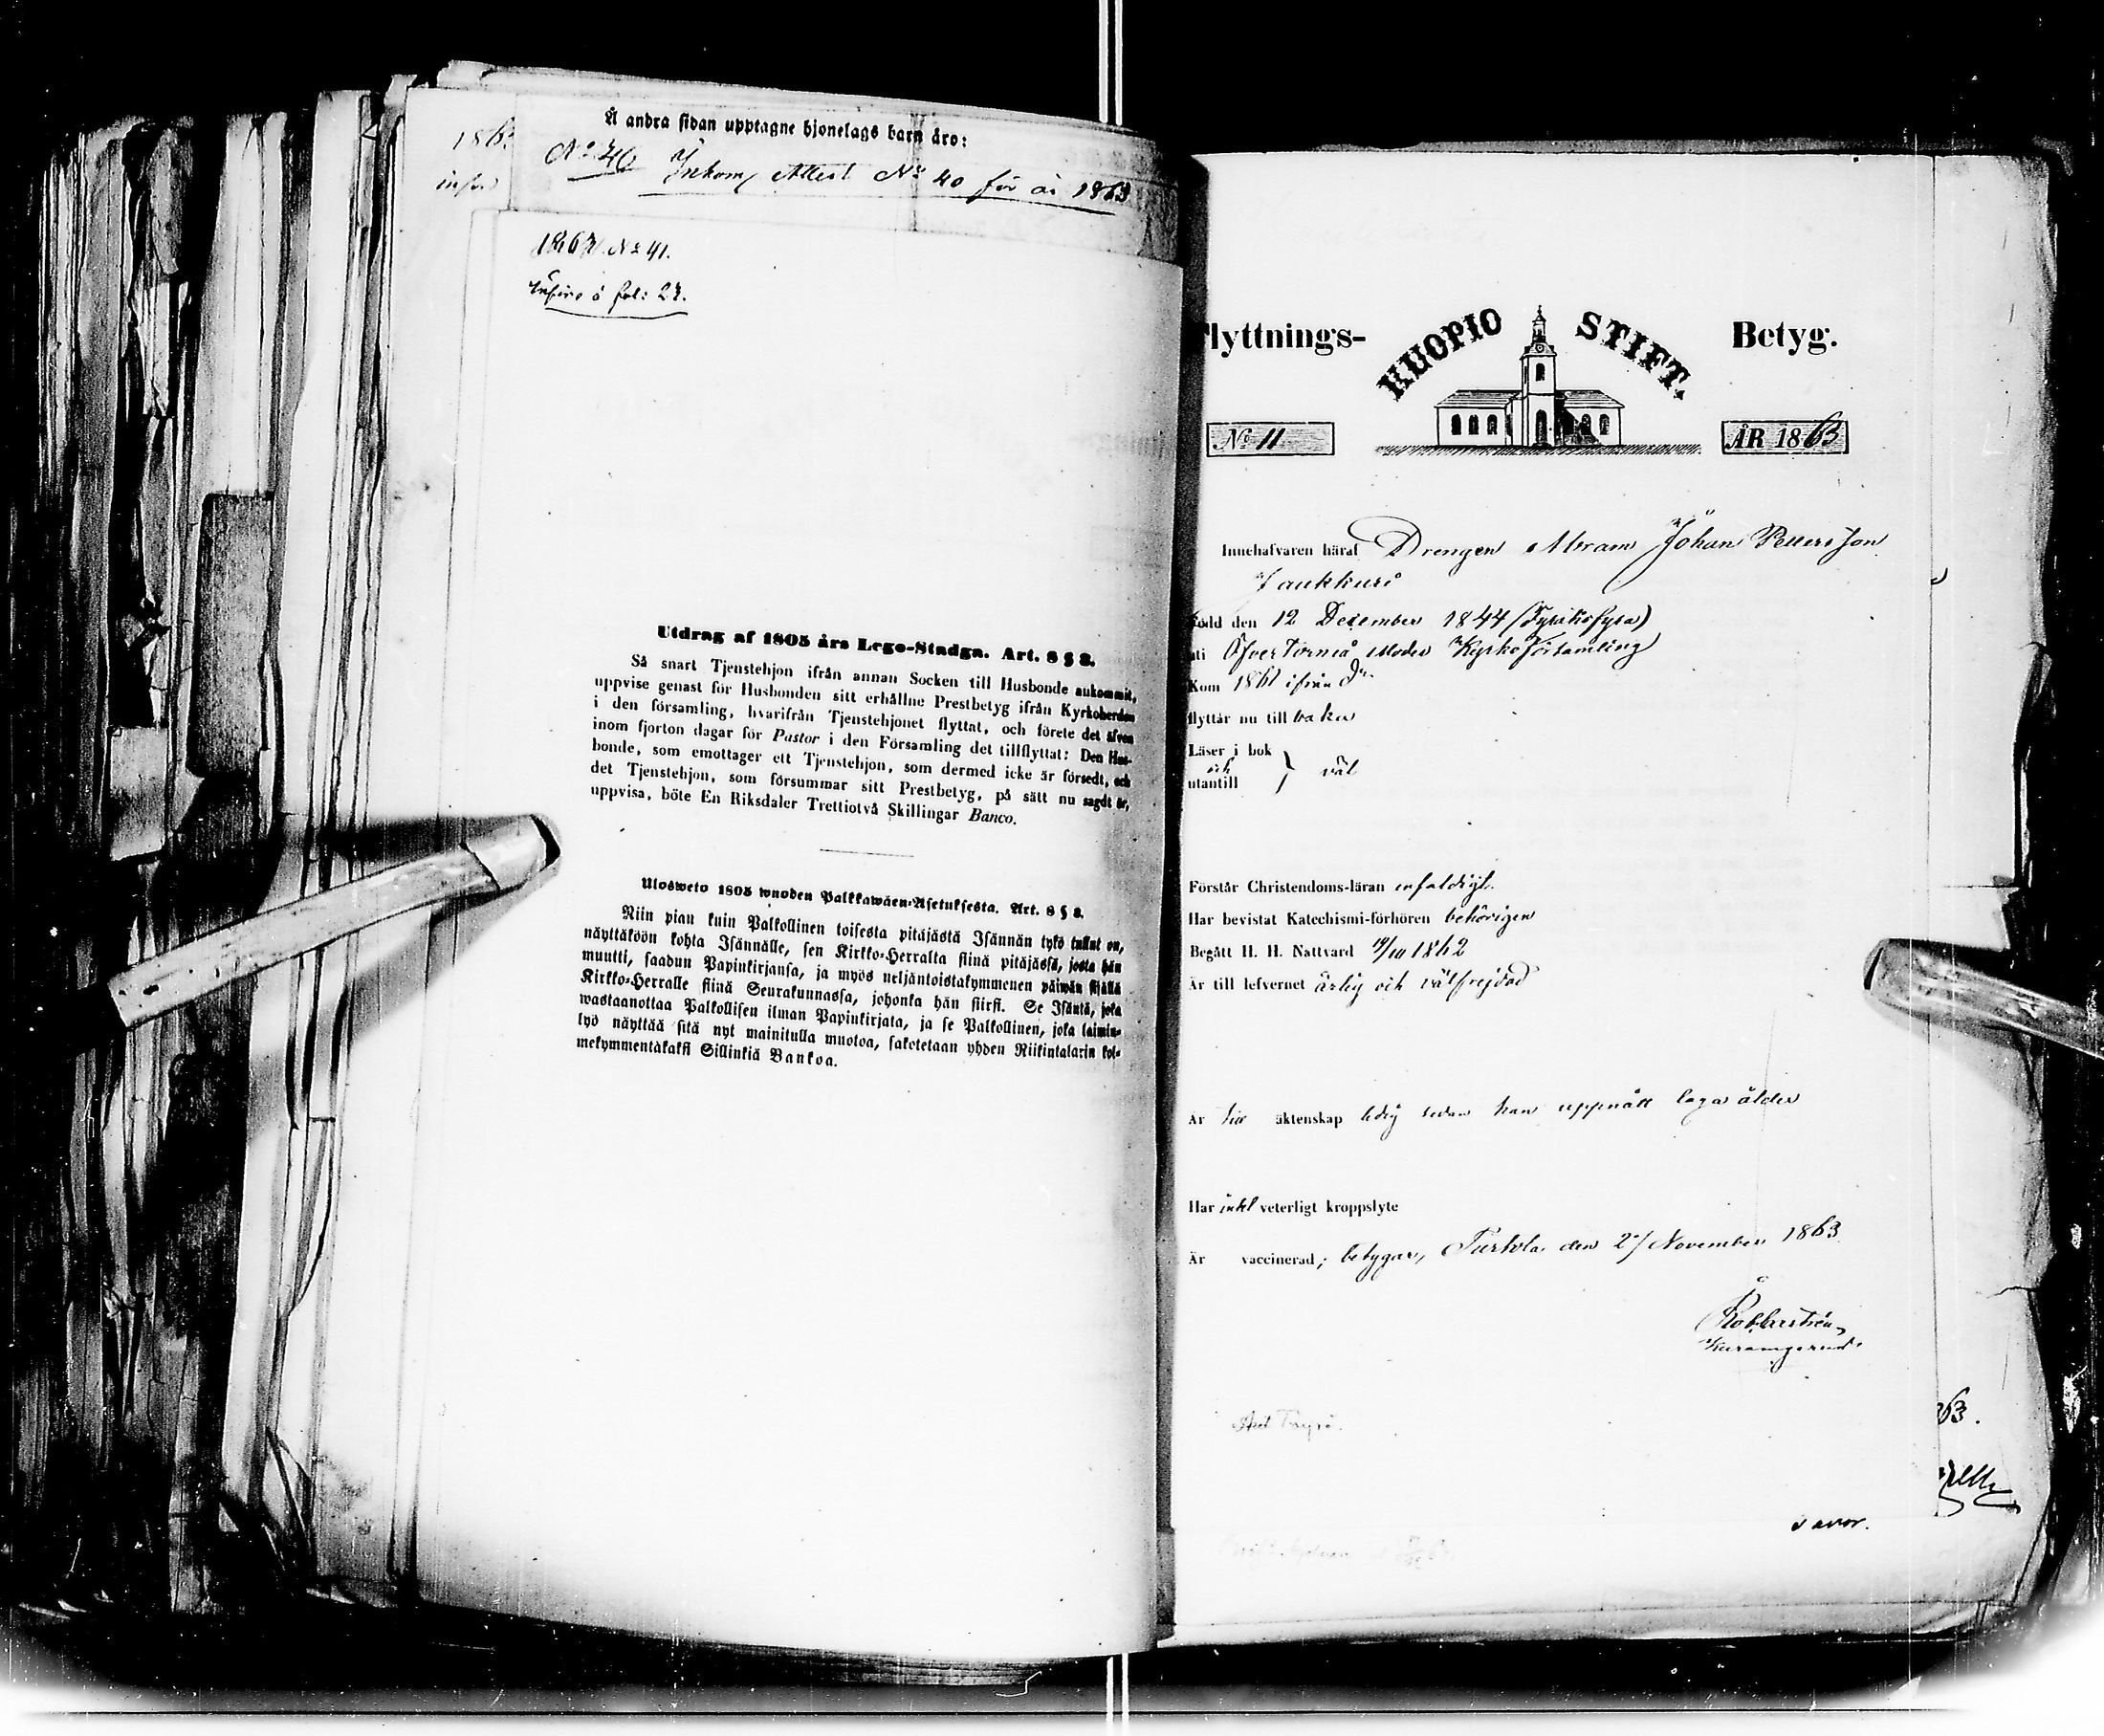 1863
Å andra sidan upptagne hjonelags barn äro:
No 40 Inkom. Attest No 40 för år 1863
1863. No 41.
Införd å fol: 27.
Utdrag af 1805 års Lego-Stadga. Art. 8 § 8.
Så snart Tjenstehjon ifrån annan Socken till Husbonde ankommit,
uppvise genast för Husbonden sitt erhållne Prestbetyg ifrån Kyrkoherden
i den församling, hvarifrån Tjenstehjonet flyttat, och förete det äfven
inom fjorton dagar för Pastor i den Församling det tillflyttat: Den Hus-
bonde, som emottager ett Tjenstehjon, som dermed icke är försedt, och
det Tjenstehjon, som försummar sitt Prestbetyg, på sätt nu sagdt är,
uppvisa, böte En Riksdaler Trettiotvå Skillingar Banco.
Ulosweto 1805 wuoden Palkkawäen-Asetuksesta. Art. 8 § 8.
Niin pian kuin Palkollinen toisesta pitäjästä Isännän tykö tullut on,
näyttäköön kohta Isännälle, sen Kirkko-Herralta siinä pitäjässä, josta hän
muutti, saadun Papinkirjansa, ja myös neljäntoistakymmenen päiwän sisällä
Kirkko-Herralle siinä Seurakunnassa, johonka hän siirsi. Se Isäntä, joka
wastaanottaa Palkollisen ilman Papinkirjata, ja se Palkollinen, joka laimin-
lyö näyttää sitä nyt mainitulla muotoa, saketetaan yhden Riikintalarin kol-
mekymmentäkaksi Sillinkiä Bankoa.
Flyttnings- KUOPIO STIFT. Betyg.
No 11 ÅR 1863
Innehafvaren häraf Drengen Abram Johan Pettersson
Jaukkuri
född den 12 December 1844 (Fyratiofyra)
uti Öfver Torneå Moder Kyrko församling
Kom 1861 ifrån do
flyttar nu till baka
Läser i bok
och väl
utantill
Förstår Christendoms-läran enfaldigt.
Har bevistat Katechismi-förhören behörigen
Begått H. H. Nattvard 19/10 1862
Är till lefvernet ärlig och välfrejdad
Är till äktenskap ledig sedan han uppnått laga ålder
Har intet veterligt kroppslyte
Är vaccinerad; betygar, Turtola den 2/ November 1863
63.